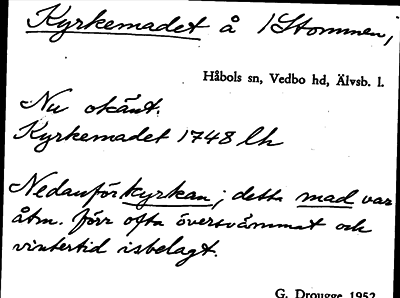 Kyrkemadet å /Stommen,
Håbols sn, Vedbo hd, Älvsb. l.
Nu okänt.
Kyrkemadet 1748 lh
Nedanför kyrkan; detta mad var
åtm. förr ofta översvämmat och
vintertid isbelagt.
G. Drougge 1952